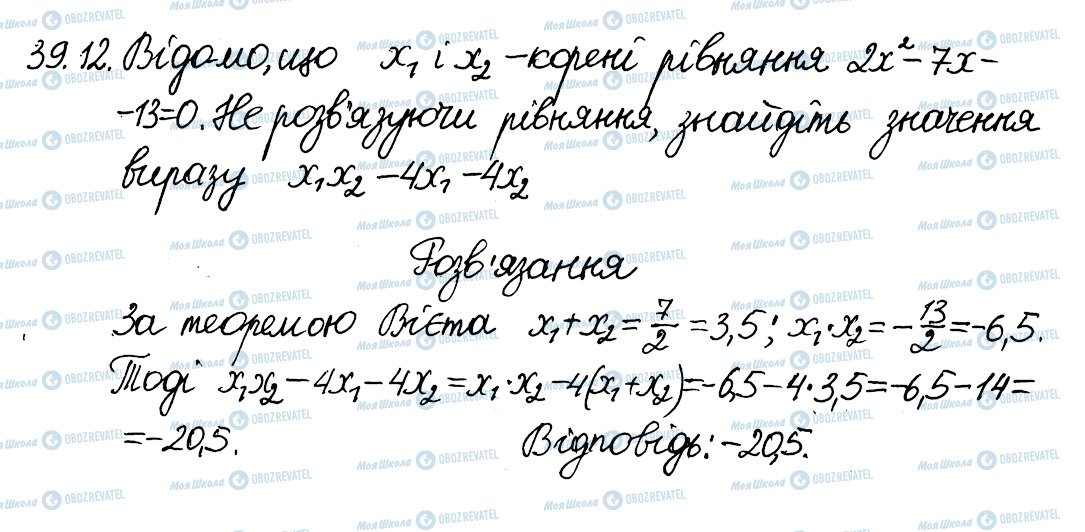 39.12. Відомо, що x₁ і x₂ – корені рівняння 2x² – 7x –
–13=0. Не розв'язуючи рівняння, знайдіть значення
виразу x₁x₂ – 4x₁ – 4x₂
Розв'язання
За теоремою Вієта x₁ + x₂ = 7/2 = 3,5; x₁·x₂ = –13/2 = –6,5.
Тоді x₁x₂ – 4x₁ – 4x₂ = x₁·x₂ – 4(x₁+x₂) = –6,5 – 4·3,5 = –6,5 – 14 =
= –20,5. Відповідь: –20,5.